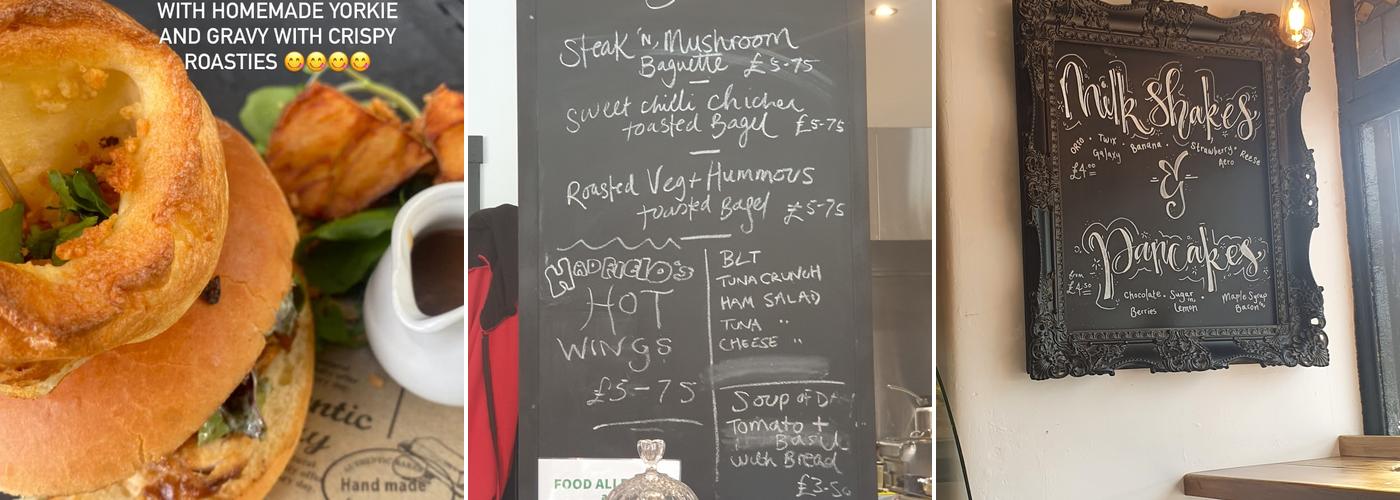 WITH HOMEMADE YORKIE
AND GRAVY WITH CRISPY
ROASTIES 😋😋😋😋
Hand made
Steak 'N' Mushroom
Baguette £5-75
Sweet chilli chicken
toasted Bagel £5-75
Roasted Veg + Hummous
toasted Bagel £5-75
HADFIELD'S
HOT
WINGS
£5-75
BLT
TUNA CRUNCH
HAM SALAD
TUNA "
CHEESE "
Soup of Day
Tomato +
Basil
with Bread
£3-50
FOOD ALLE
Milkshakes
Oreo • Twix • Banana • Strawberry • Reese
Galaxy Aero
£4.00
&
Pancakes
from
£4.50
Chocolate • Sugar n • Maple Syrup
Berries Lemon Bacon